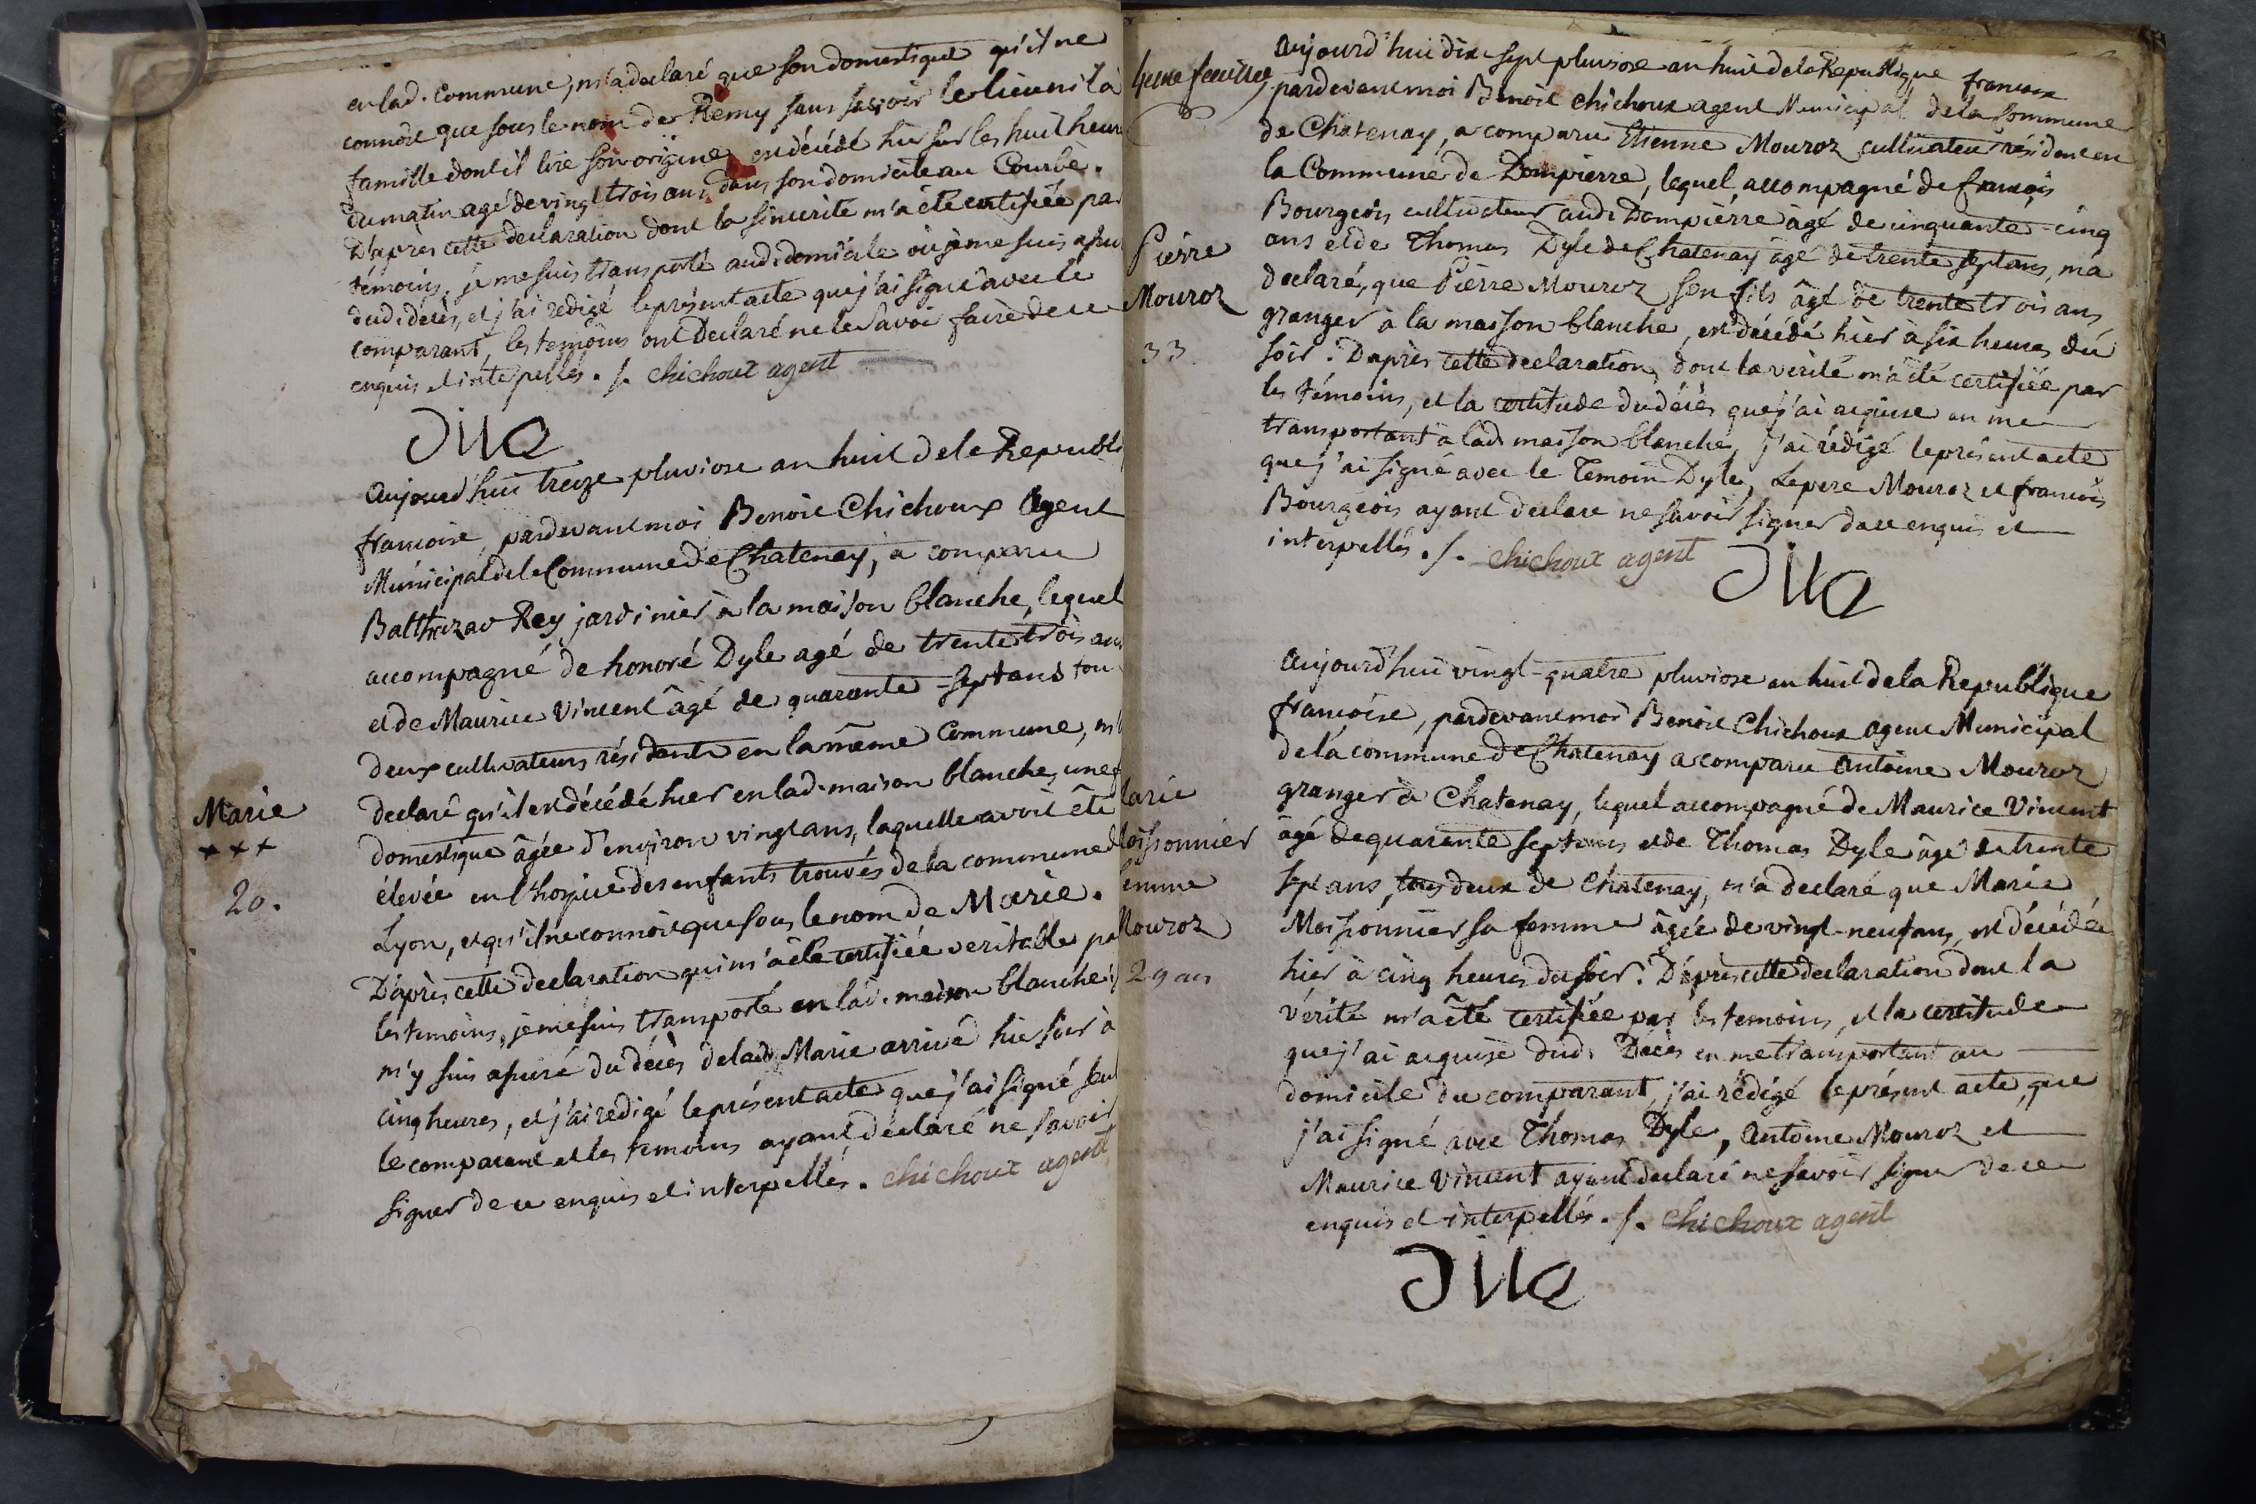 en lad. Commune, m'a declaré que son domestique qu'il ne
connoît que sous le nom de Remy sans savoir le lieu ni la
famille dont il tire son origine est décédé hier sur les huit heure
du matin agé de vingt trois ans dans son domicile au Courbe.
D'après cette declaration dont la sincerité m'a été certifiée par
témoins, je me suis transporté aud. domicile où je me suis assu
dud. decès, et j'ai redigé le présent acte que j'ai signé avec le
comparant, les temoins ont Declaré ne le savoir faire de ce
enquis et interpellés ./. chichoux agent
Dile
Aujourd'huy treize pluviose an huit de la Republi
francoise, pardevant moi Benoit Chichoux Agent
Municipal de la Commune de Chatenay, a comparu
Balthazar Rey jardinier à la maison blanche, lequel
accompagné de honoré Dyle agé de trente trois ans
et de Maurice Vincent âgé de quarante-sept ans tou
deux cultivateurs résidants en la même Commune, m'
declaré qu'il est décédé hier en lad. maison blanche, une
domestique âgée d'environ vingt ans, laquelle avoit été
Marie
+++
20.
élevée en l'hospice des enfants trouvés de la commune d
Lyon, et qu'il ne connoit que sous le nom de Marie.
D'après cette declaration qui m'a été certifiée veritable pa
les temoins, je me suis transporté en lad. maison blanche
m'y suis assuré du décès de lad. Marie arrivé hier soir à
cinq heures, et j'ai redigé le présent acte que j'ai signé seul
le comparant et les temoins ayant déclaré ne savoir
signer de ce enquis et interpellés. chichoux agent
feuillet
Aujourd'hui dix sept pluviose an huit de la Republique francoise
pardevant moi Benoit chichoux agent Municipal de la Commune
de Chatenay, a comparu Etienne Mouroz cultivateur résident en
la Commune de Dompierre, lequel accompagné de francois
Bourgeois cultivateur aud. Dompierre âgé de cinquante-cinq
ans et de Thomas Dyle de Chatenay âgé de trente sept ans, m'a
Pierre
Mouroz
33
declaré, que Pierre Mouroz son fils âgé de trente trois ans
granger à la maison blanche, est décédé hier à six heures du
soir. D'après cette declaration, dont la vérité m'a été certifiée par
les témoins, et la certitude du décès que j'ai acquise en me
transportant à lad. maison blanche, j'ai rédigé le présent acte
que j'ai signé avec le Temoin Dyle, Le pere Mouroz et francois
Bourgeois ayant declaré ne savoir signer de ce enquis et
interpellés ./. chichoux agent
Dile
Aujourd'hui vingt-quatre pluviose an huit de la Republique
francoise, pardevant moi Benoit Chichoux agent Municipal
de la commune de Chatenay a comparu Antoine Mouroz
granger à Chatenay, lequel accompagné de Maurice Vincent
âgé de quarante sept ans et de Thomas Dyle âgé de trente
sept ans, tous deux de Chatenay, m'a declaré que Marie
arie
oissonnier
emme
Mouroz
29 ans
Moissonnier sa femme âgée de vingt-neuf ans, est décédée
hier à cinq heures du soir. D'après cette declaration dont la
vérité m'a été certifiée par les temoins, et la certitude
que j'ai acquise dud. Décès en me transportant au
domicile du comparant, j'ai rédigé le présent acte, que
j'ai signé avec Thomas Dyle, Antoine Mouroz et
Maurice Vincent ayant declaré ne savoir signer de ce
enquis et interpellés ./. chichoux agent
Dile